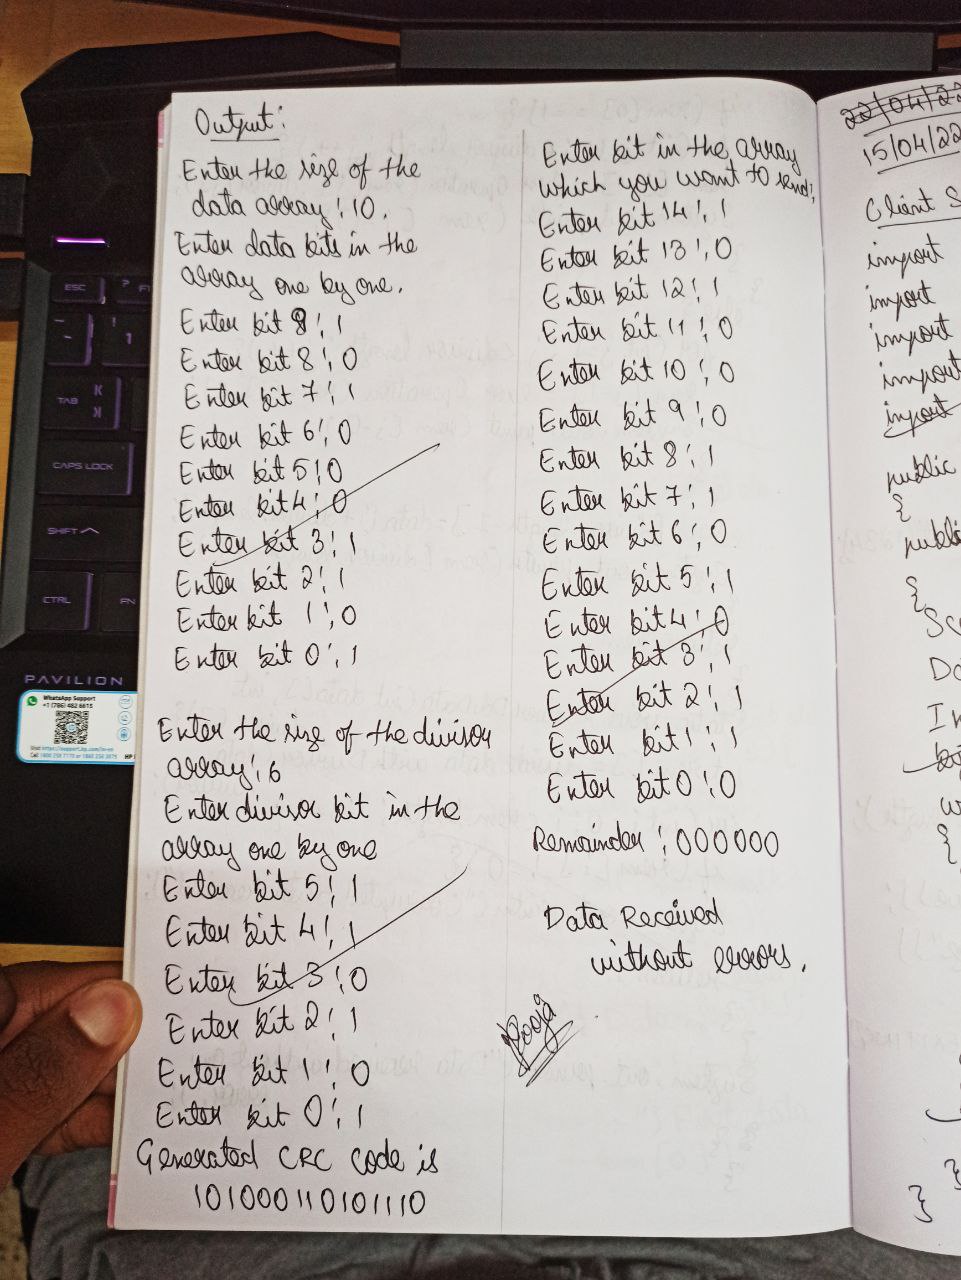 Output:
Enter the size of the
data array : 10.
Enter data bits in the
array one by one.
Enter bit 9 : 1
Enter bit 8 : 0
Enter bit 7 : 1
Enter bit 6 : 0
Enter bit 5 : 0
Enter bit 4 : 0
Enter bit 3 : 1
Enter bit 2 : 1
Enter bit 1 : 0
Enter bit 0 : 1
Enter the size of the divisor
array : 6
Enter divisor bit in the
array one by one
Enter bit 5 : 1
Enter bit 4 : 1
Enter bit 3 : 0
Enter bit 2 : 1
Enter bit 1 : 0
Enter bit 0 : 1
Generated CRC code is
101000110101110
Enter bit in the array
which you want to send:
Enter bit 14 : 1
Enter bit 13 : 0
Enter bit 12 : 1
Enter bit 11 : 0
Enter bit 10 : 0
Enter bit 9 : 0
Enter bit 8 : 1
Enter bit 7 : 1
Enter bit 6 : 0
Enter bit 5 : 1
Enter bit 4 : 0
Enter bit 3 : 1
Enter bit 2 : 1
Enter bit 1 : 1
Enter bit 0 : 0
Remainder : 000000
Data Received
without errors.
Pooja
22/04/22
15/04/22
Client S
import
import
import
import
import
public
{
public
{
Sc
Da
In
{
}
}
ESC
TAB
CAPS LOCK
SHIFT
CTRL
FN
PAVILION
WhatsApp Support
+1 (786) 482 6615